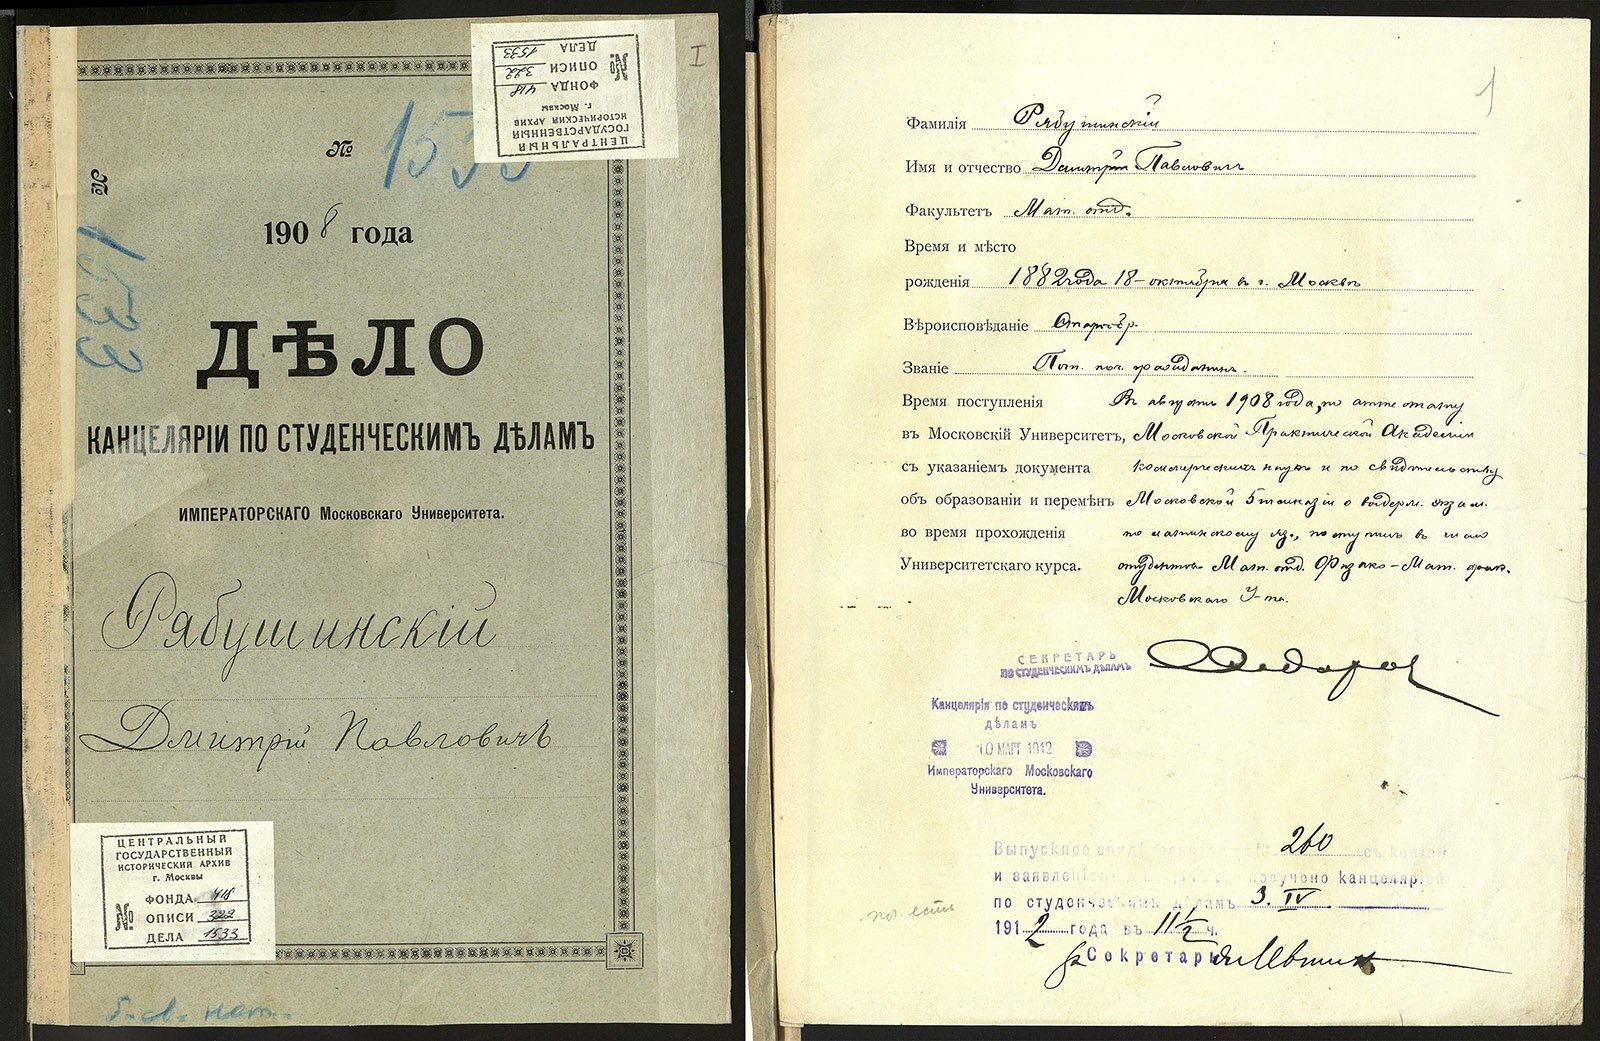 I
ЦЕНТРАЛЬНЫЙ
ГОСУДАРСТВЕННЫЙ
ИСТОРИЧЕСКИЙ АРХИВ
г. Москвы
ФОНДА 418
№ ОПИСИ 322
ДЕЛА 1533
№ 153
№ 1533
1908 года
ДѢЛО
КАНЦЕЛЯРІИ ПО СТУДЕНЧЕСКИМЪ ДѢЛАМЪ
ИМПЕРАТОРСКАГО Московскаго Университета.
Рябушинскій
Дмитрій Павловичъ
ЦЕНТРАЛЬНЫЙ
ГОСУДАРСТВЕННЫЙ
ИСТОРИЧЕСКИЙ АРХИВ
г. Москвы
ФОНДА 418
№ ОПИСИ 322
ДЕЛА 1533
1
Фамилія Рябушинскій
Имя и отчество Дмитрій Павловичъ
Факультетъ Мат. отд.
Время и мѣсто
рожденія 1882 года 18-октября въ г. Москвѣ
Вѣроисповѣданіе Старообр.
Званіе Пот. поч. гражданинъ.
Время поступленія Въ августѣ 1908 года, по аттестату
въ Московскій Университетъ, Московской Практической Академіи
съ указаніемъ документа коммерческихъ наукъ и по свидѣтельству
объ образованіи и перемѣнъ Московской 5 гимназіи о выдерж. экзам.
во время прохожденія по латинскому яз., поступилъ въ число
Университетскаго курса. студентовъ Мат. отд. Физико-Мат. фак.
Московскаго У-та.
СЕКРЕТАРЬ
ПО СТУДЕНЧЕСКИМЪ ДѢЛАМЪ
Канцелярія по студенческимъ
дѣламъ
10 МАРТ 1912
Императорскаго Московскаго
Университета.
Выпускное свидѣтельство за № 260 съ копіей
и заявленіемъ получено канцеляріей
по студенческимъ дѣламъ 3. IV.
1912 года въ 11½ ч.
Секретарь